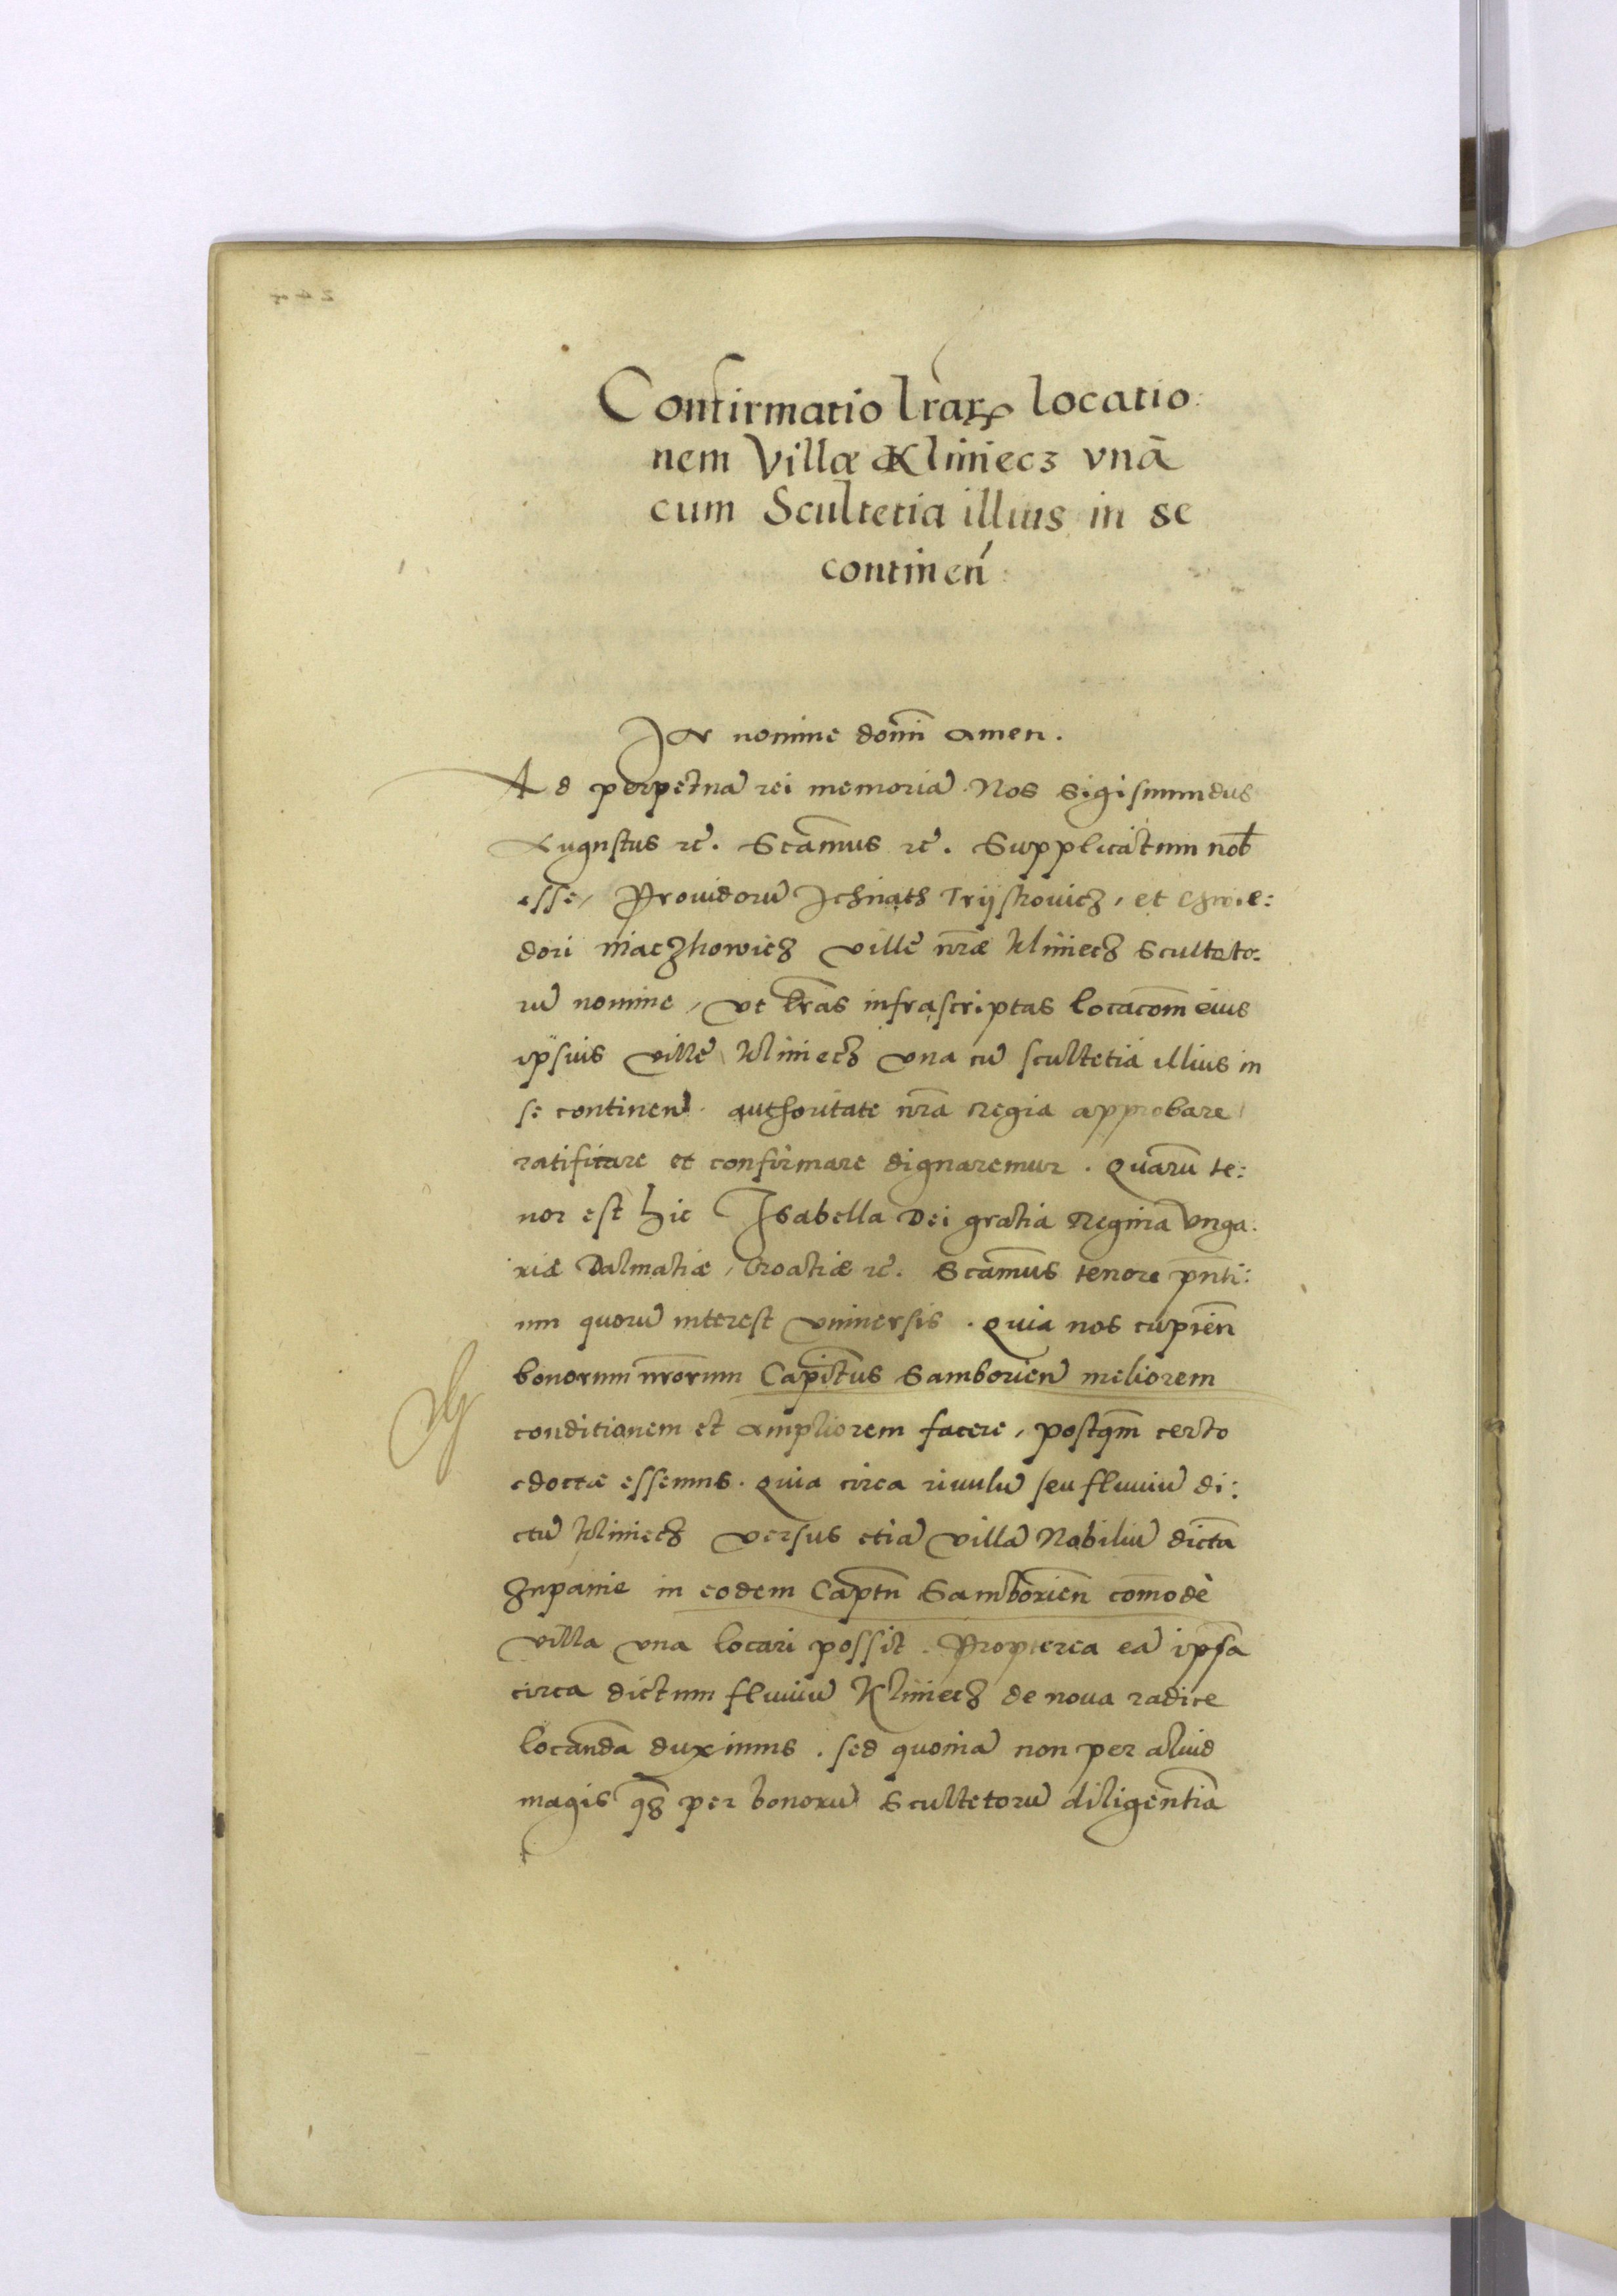 Confirmatio lrar locatio:
nem Villæ Klimecz vnā
cum Scultetia illius in se
continen
In nomine domi amen.
Ad perpetuā rei memoriā. Nos Sigismundus
Augustus rc̄. Scamus rc̄. Supplicatum nob
esse, Prouidorū Ichnath Trijstrouicz, et
dori maczkowicz ville nr̄æ klimecz Sculteto:
rū nomine, vt lr̄as infrascriptas locacom eius
ipsius villē klimecz vna cū scultetia illius in
se continen. authoritate nr̄a regia approbare
ratificare et confirmare dignaremur. Quarū te:
nor est hic Isabella Dei gratia Regina Vnga:
riæ Dalmatiæ, Croatiæ rc̄. Scamus tenore pn̄ti:
um quorū interest vniuersis. Quia nos cupien̄
bonorum nr̄orum Capitus Samborien meliorem
conditionem et ampliorem facere, postqm̄ certo
edoctæ essemus. Quia circa riuulū seu fluuiū di:
ctū klimecz versus etiā villā Nobiliū dictā
Zupanie in eodem Captu Samborien̄ com̄odè
villa vna locari possit. Propterea eā ipsā
circa dictum fluuiū Klimecz de noua radice
locandā duximus. sed quoniā non per aliud
magis qz per bonorū Scultetorū diligentiā